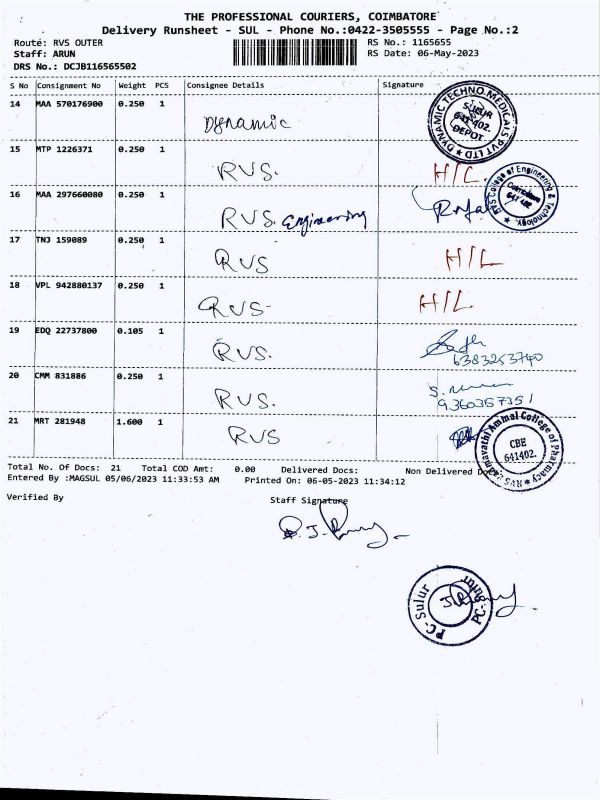 THE PROFESSIONAL COURIERS, COIMBATORE
Delivery Runsheet - SUL - Phone No.:0422-3505555 - Page No.:2
Route: RVS OUTER
RS No.: 1165655
Staff: ARUN
RS Date: 06-May-2023
DRS No.: DCJB116565502
S No Consignment No Weight PCS Consignee Details Signature
14 MAA 570176900 0.250 1 Dynamic
DYNAMIC TECHNO MEDICALS PVT LTD
SULUR
641 402.
DEPOT
15 MTP 1226371 0.250 1 RVS. H/L
16 MAA 297660080 0.250 1 RVS. Engineering
RVS College of Engineering & Technology
Coimbatore
641 402
17 TNJ 159089 0.250 1 RVS H/L
18 VPL 942880137 0.250 1 RVS- H/L
19 EDQ 22737800 0.105 1 RVS.
6383253740
20 CMM 831886 0.250 1 RVS.
9360357351
21 MRT 281948 1.600 1 RVS
College of Pharmacy
CBE
641402.
RVS
Total No. Of Docs: 21 Total COD Amt: 0.00 Delivered Docs: Non Delivered
Entered By :MAGSUL 05/06/2023 11:33:53 AM Printed On: 06-05-2023 11:34:12
Verified By Staff Signature
PC- Sulur